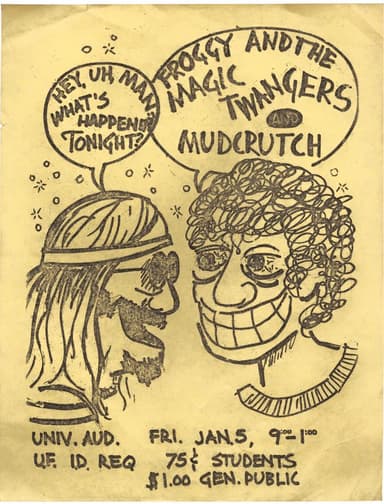 HEY, UH, MAN,
WHAT'S
HAPPENIN'
TONIGHT?
FROGGY AND THE
MAGIC
TWANGERS
AND
MUDCRUTCH
UNIV. AUD. FRI. JAN. 5, 9:00-1:00
U.F. I.D. REQ 75¢ STUDENTS
$1.00 GEN. PUBLIC